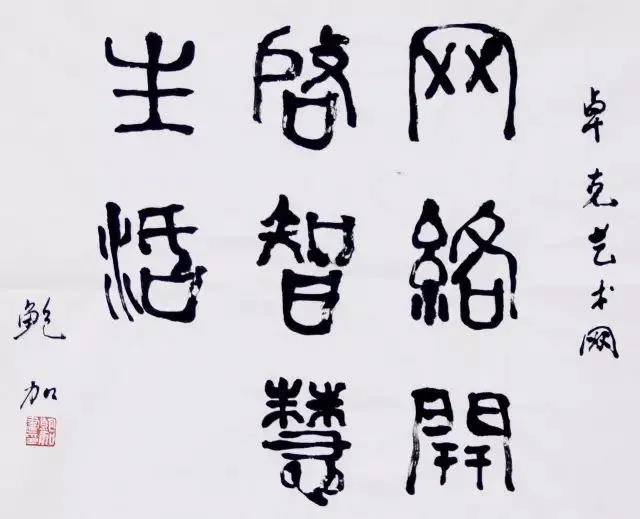 卓克艺术网
网絡開
啓智慧
生活
鲍加